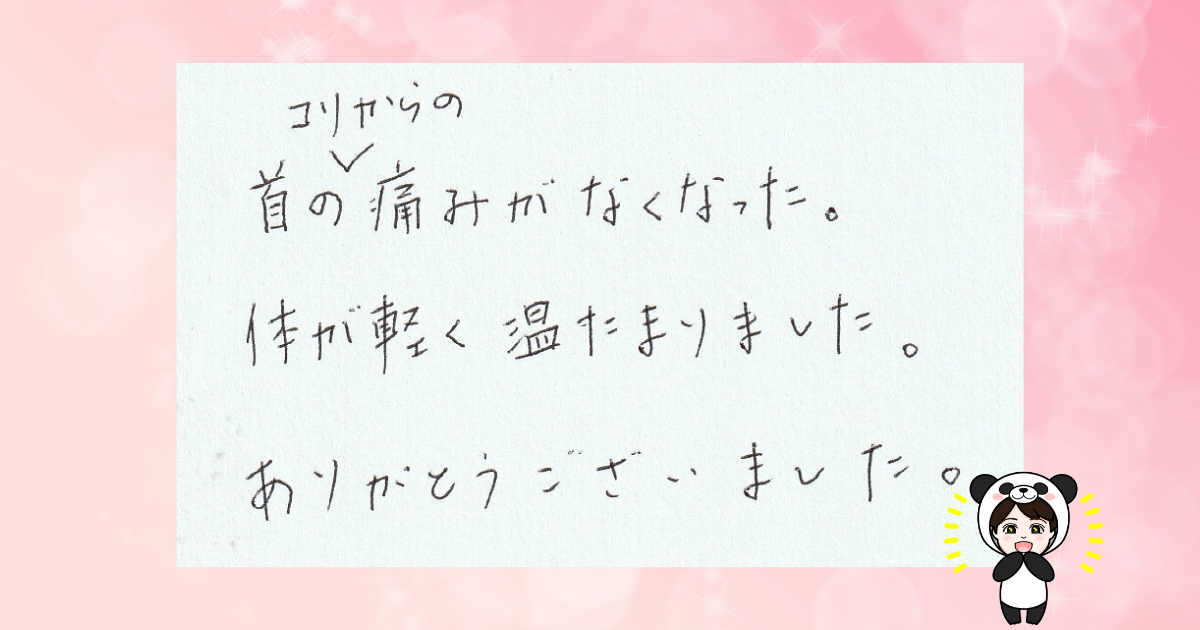 コリからの
首の痛みがなくなった。
体が軽く温たまりました。
ありがとうございました。